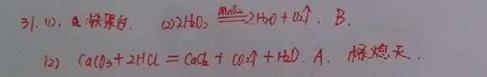 31. (1). 铁架台. (2) 2H₂O₂ =MnO₂= 2H₂O + O₂↑. B.
(2) CaCO₃ + 2HCl = CaCl₂ + CO₂↑ + H₂O. A. 熄灭.